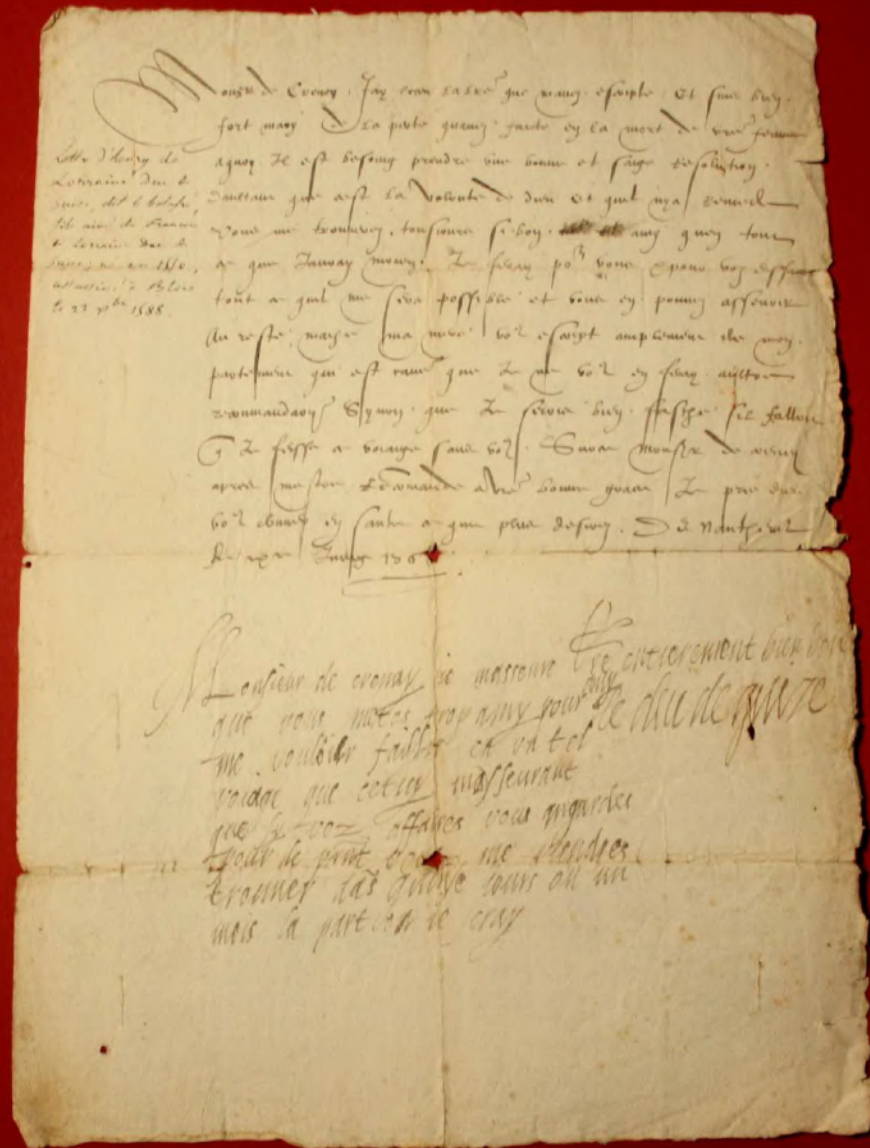 Monsr de Crenay Jay veu la lre que mavez escripte Et suis bien
fort marry de la perte quavez faicte en la mort de vre femme
aquoy Il est besoing prendre une bonne et saige Resolution
daultant que cest la volonte de dieu et quil nya Remede
vous me trouverez tousiours si bon amy quen tout
ce que Jauray moien Je feray por vous
tout ce quil me sera possible et vous en pouvez asseurer
Au reste ma mere vos escript amplement de mon
partement qui est cause que Je ne vos en feray aultre
Synon que Je serois bien fasche sil falloit
q Je feisse ce voiage sans vos Monsr de
apres mestre Recommande a vre bonne grace Je prie dieu
vos donner en sante ce que plus desirez De Nantheuil
Lettre d'henry de
Lorraine Duc de
Guise, dit le balafré,
fils aine de Francois
de Lorraine Duc de
Guise, né en 1550,
assassiné à Blois
le 23 Xbre 1588.
Monsieur de crenay ie masseure
que vous mestes trop amy pour
me vouloir faillir en un tel
voiage que cetuy masseurant
que si voz affaires vous
pour le pnt vous me viendres
trouver das quinze iours ou un
mois la part ou ie seray
Vre entierement bien bon
amy
Le duc de guize